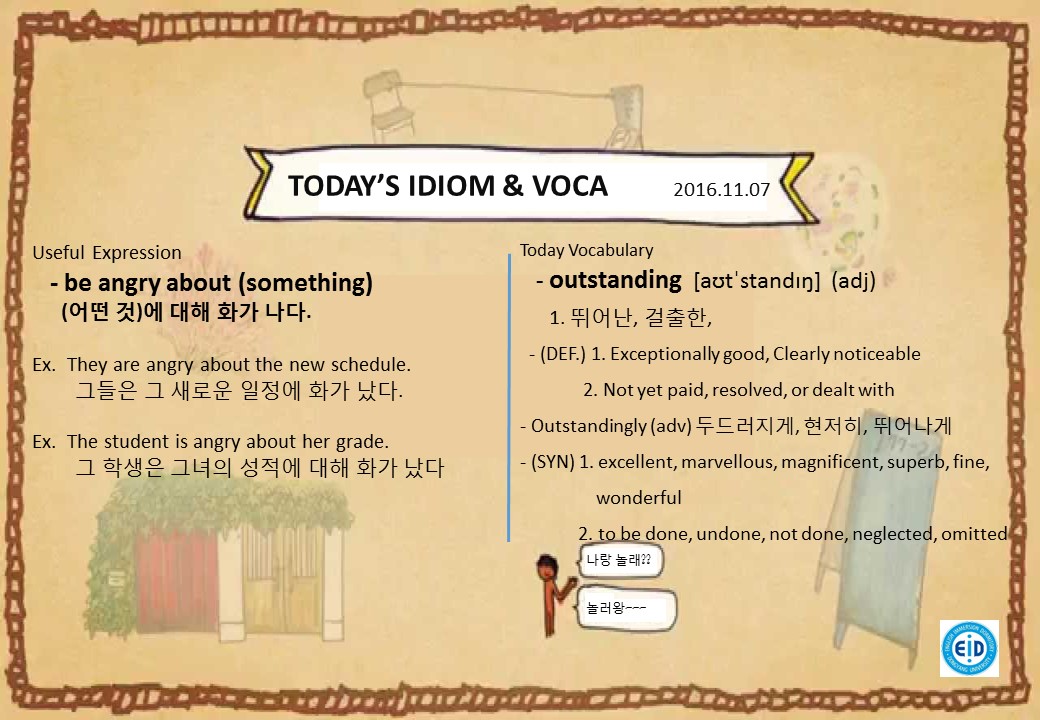 TODAY’S IDIOM & VOCA 2016.11.07
Useful Expression
- be angry about (something)
(어떤 것)에 대해 화가 나다.
Ex. They are angry about the new schedule.
그들은 그 새로운 일정에 화가 났다.
Ex. The student is angry about her grade.
그 학생은 그녀의 성적에 대해 화가 났다
Today Vocabulary
- outstanding [aʊtˈstandɪŋ] (adj)
1. 뛰어난, 걸출한,
- (DEF.) 1. Exceptionally good, Clearly noticeable
2. Not yet paid, resolved, or dealt with
- Outstandingly (adv) 두드러지게, 현저히, 뛰어나게
- (SYN) 1. excellent, marvellous, magnificent, superb, fine,
wonderful
2. to be done, undone, not done, neglected, omitted
나랑 놀래??
놀러왕~~~
EiD